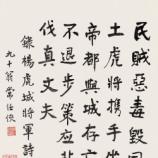 民賊惡毒毀
土虎將携手
帝都與將
不退步策
伐真丈夫
錄楊虎城將軍詩
九十翁常任俠